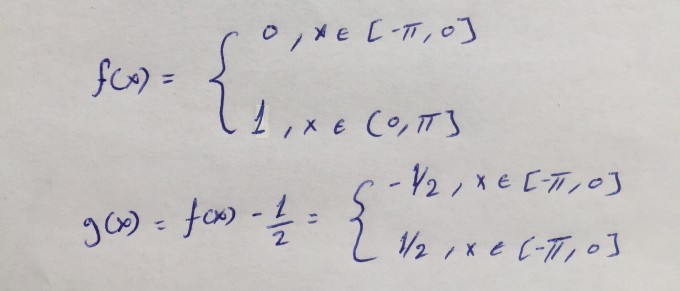 f(x) = { 0 , x ∈ [-π, 0]
1 , x ∈ (0, π]
g(x) = f(x) - 1/2 = { -1/2 , x ∈ [-π, 0]
1/2 , x ∈ [-π, 0]